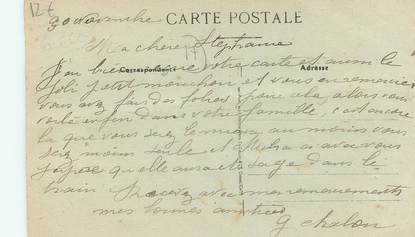 12 €
30 Novembre CARTE POSTALE
Ma chère Stéphanie
Correspondance Adresse
J'ai bien reçue votre carte et aussi le
joli petit mouchoir et vous en remercie
vous avez fait des folies pour cela alors vous
voilà enfin dans votre famille, c'est encore
là que vous serez le mieux au moins vous
serez moins seule et avec vous
je pense qu'elle aura été sage dans le
train Recevez avec mes remerciements
mes bonnes amitiés
G Chalon